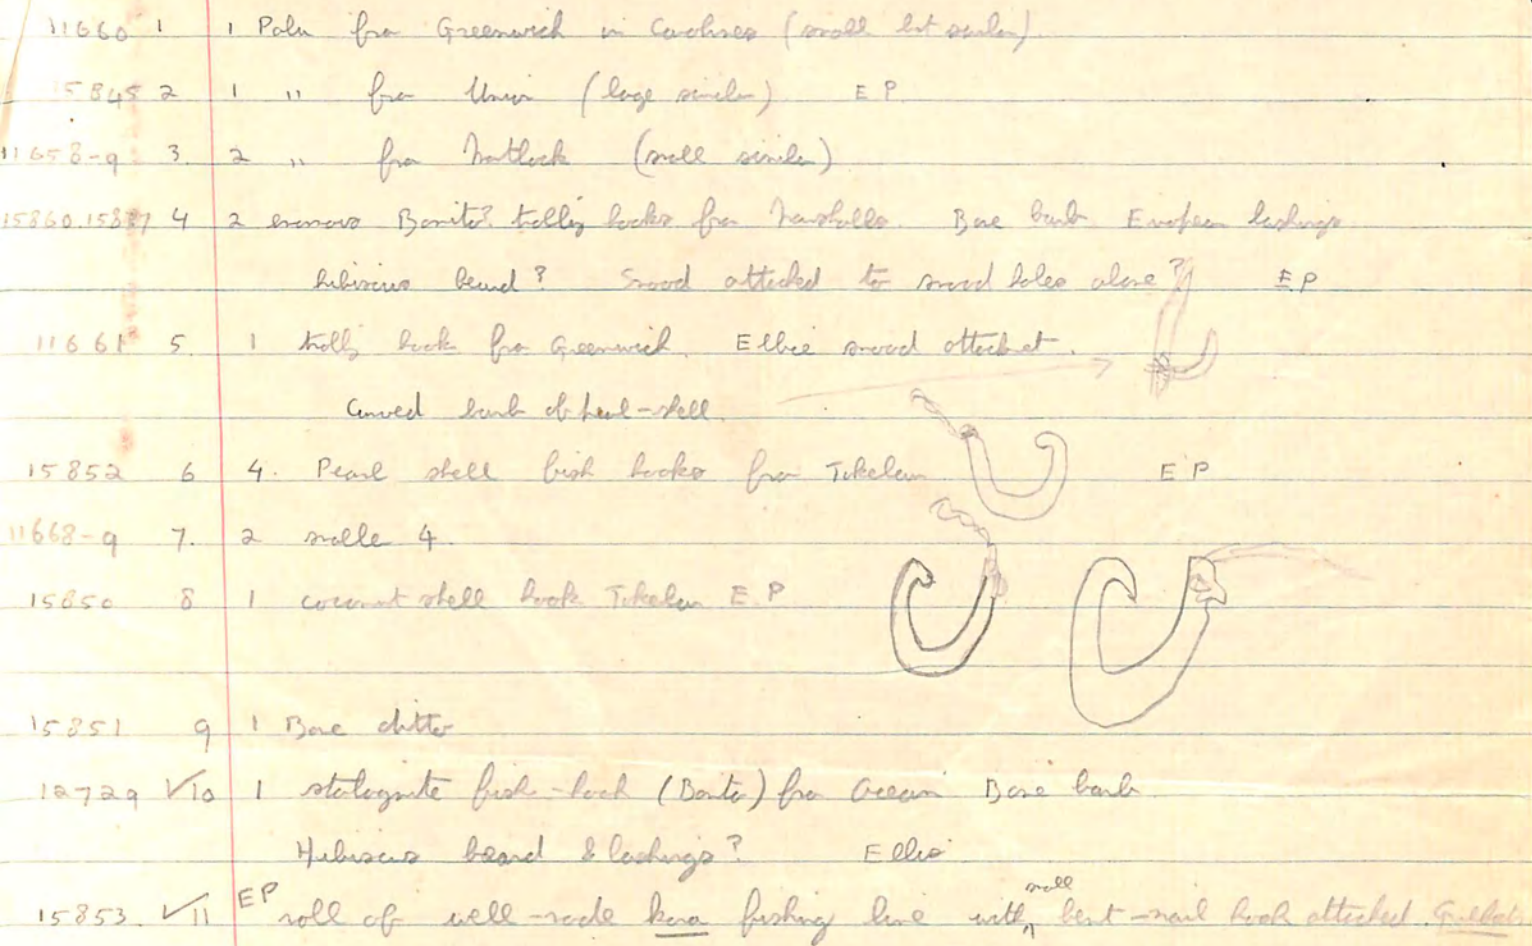 11660 1 1 Palu from Greenwich in Carolines (small but similar)
15845 2 1 " from Union (large similar) E P
11658-9 3. 2 " from Matlock (small similar)
15860.15837 4 2 enormous Bonito? trolling hooks from Marshalls. Bone barb European lashings
hibiscus beard? Snood attached to snood holes alone? E P
11661 5. 1 trolling hook from Greenwich. Ellice snood attachmet.
Curved barb of pearl-shell.
15852 6 4. Pearl shell fish hooks from Tokelau E P
11668-9 7. 2 smaller 4.
15850 8 1 coconut shell hook Tokelau E. P
15851 9 1 Bone ditto
12729 √10 1 stalagmite fish-hook (Bonito) from Ocean Bone barb
Hibiscus beard & lashings? Ellis
15853. √11 EP roll of well-made kora fishing line with small bent-nail hook attached.